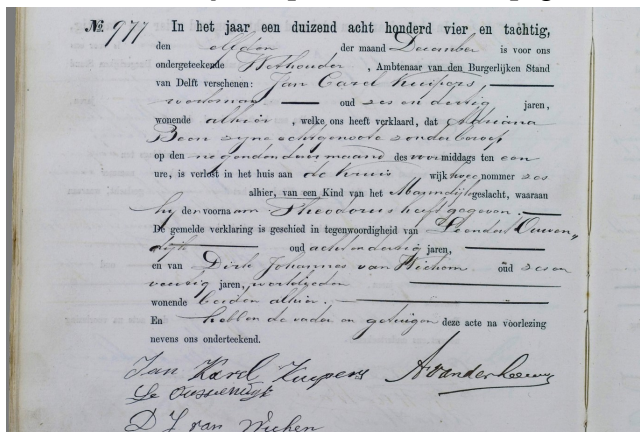 No. 977 In het jaar een duizend acht honderd vier en tachtig,
den elfden der maand December is voor ons
ondergeteekende Wethouder, Ambtenaar van den Burgerlijken Stand
van Delft verschenen: Jan Carel Kuipers,
oud zes en dertig jaren,
wonende alhier, welke ons heeft verklaard, dat Adriana
Boon zyne echtgenoote zonder beroep
op den negenden dezer maand des voormiddags ten een
ure, is verlost in het huis aan de wijk nommer zes
alhier, van een Kind van het Mannelijk geslacht, waaraan
hy den voornaam Theodorus heeft gegeven.
De gemelde verklaring is geschied in tegenwoordigheid van Leendert Ouwen„
dijk oud acht en dertig jaren,
en van Dirk Johannes van Wichem oud zes en
veertig jaren, werklieden
wonende beiden alhier.
En hebben de vader en getuigen deze acte na voorlezing
nevens ons onderteekend.
Jan Karel Kuipers AvanderLeeuw
Le Ouwendijk
D J van Wichen